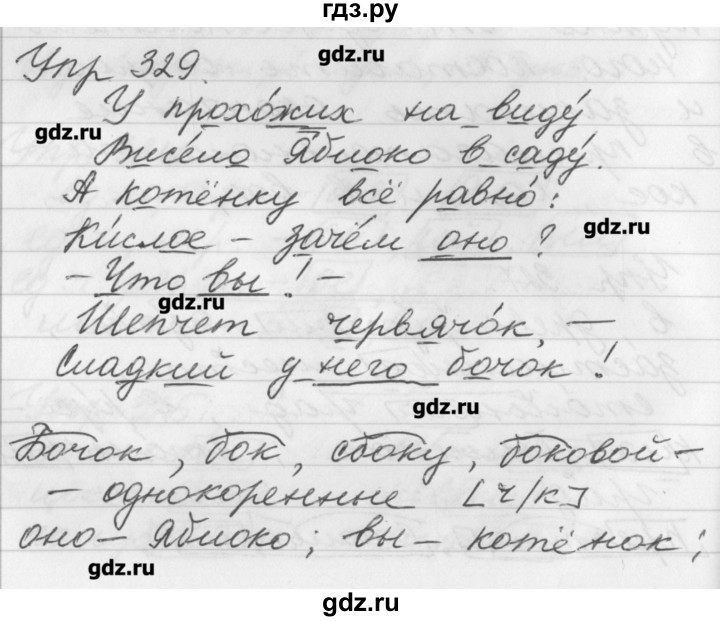 гдз.ру
Упр 329.
gdz.ru
У прохо́жих на виду́
gdz.ru
Висе́ло я́блоко в саду́.
А котёнку всё равно́:
gdz.ru
Ки́слое – заче́м оно ?
– Что вы ! –
gdz.ru
Шепчет червячо́к, –
Сладкий у него бочо́к !
gdz.ru
Бочок, бок, сбоку, боковой –
– однокоренные [ч/к]
оно – яблоко; вы – котёнок;
gdz.ru
gdz.ru